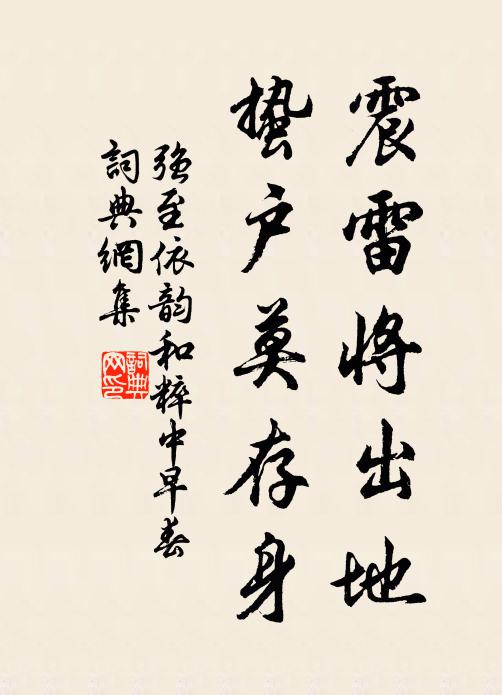 震雷將出地
蟄户莫存身
強至依韵和粹中早春
詞典網集
詞典网印